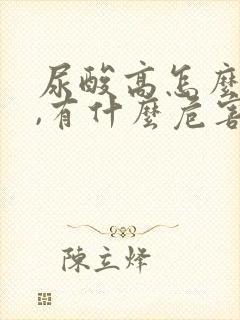 尿酸高怎麼
,有什麼危害
陳立烽